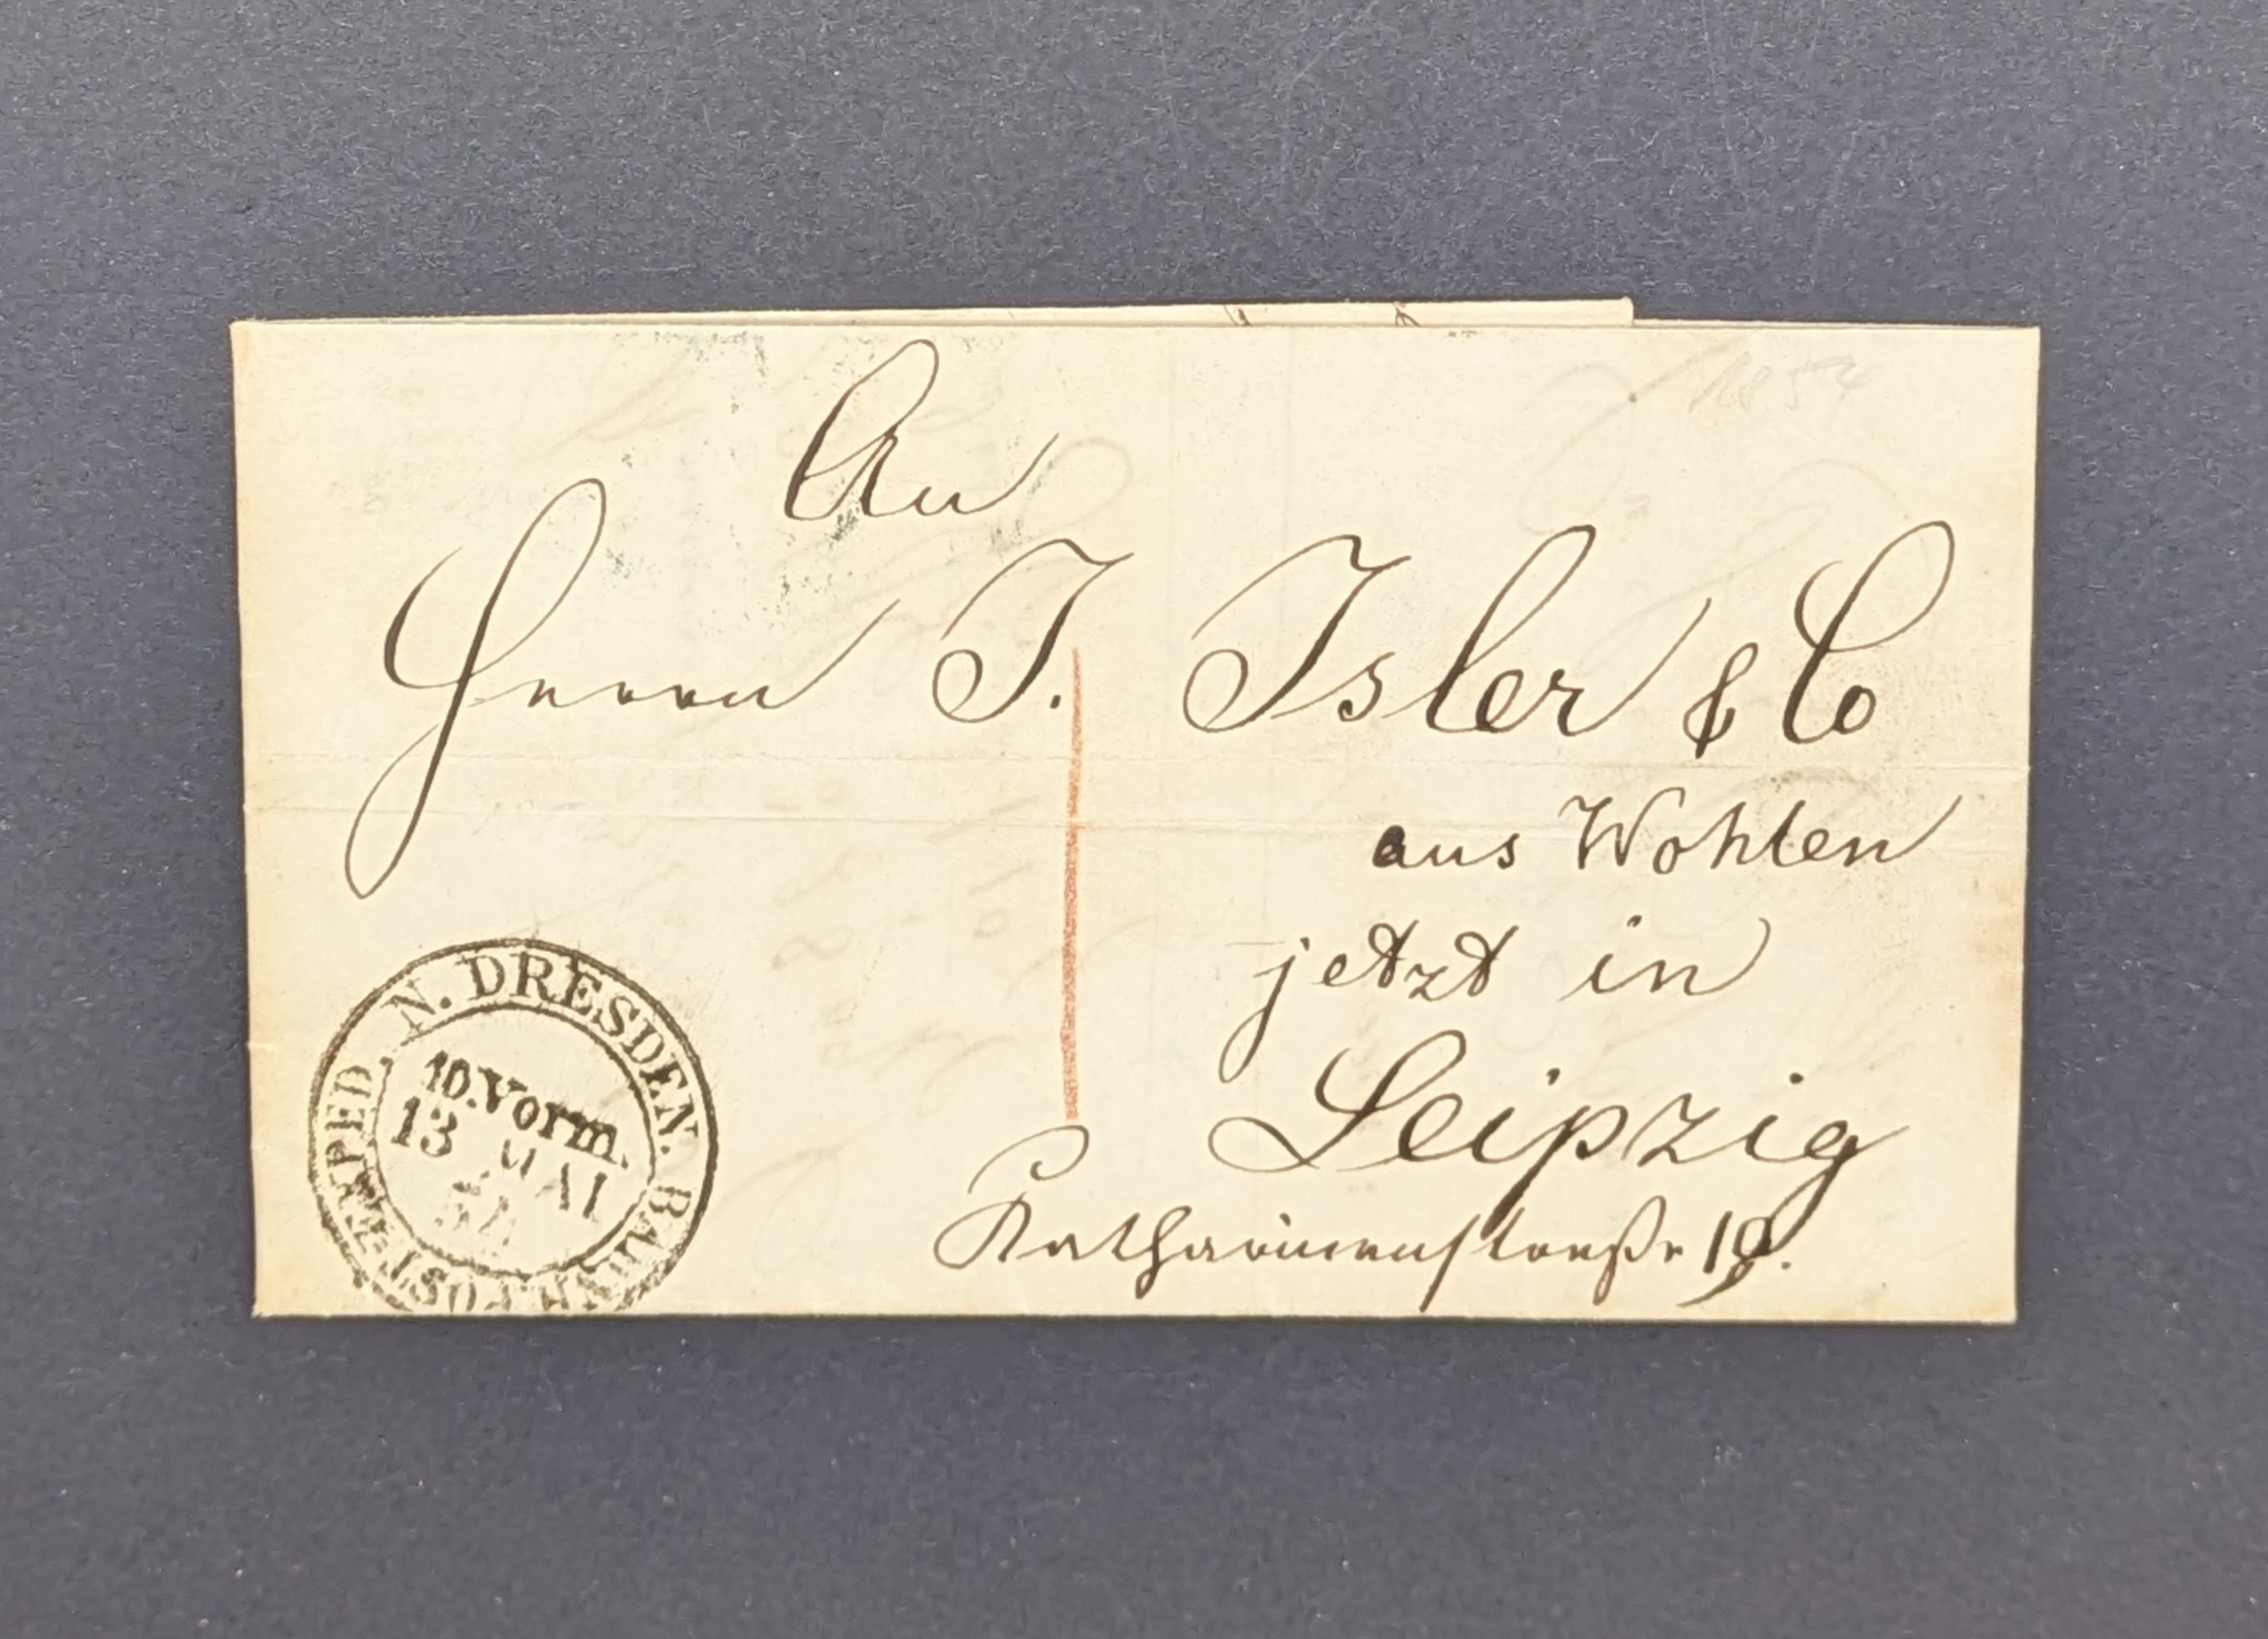 1854
An
Herrn J. Isler & Co
aus Wohlen
jetzt in
Leipzig
Katharinenstraße 19.
N. DRESDEN. BAHNH. POST-EXPED.
10. Vorm.
13 MAI
54